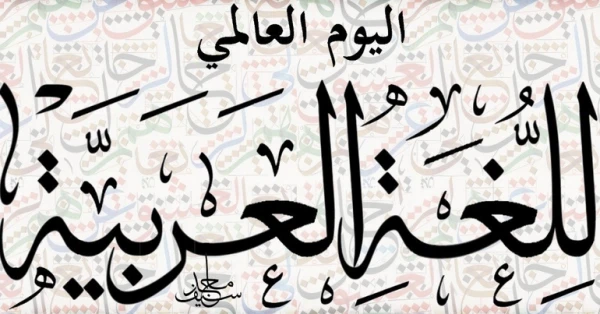 اليوم العالمي
لِلُّغَةِ العَرَبِيَّةِ